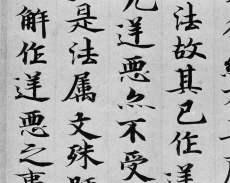 法故其已作逆
逆惡亦不受
是法属文殊
解作逆惡之事